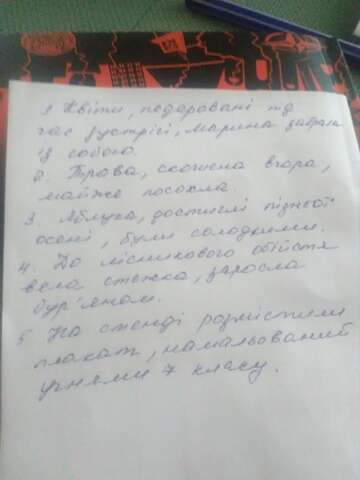 1. Квіти, подаровані під
час зустрічі, Марина забрала
із собою.
2. Трава, скошена вчора,
майже посохла.
3. Яблука, достиглі пізньої
осені, були солодкими.
4. До лісникового обійстя
вела стежка, заросла
бур'яном.
5 На стенді розмістили
плакат, намальований
учнями 7 класу.